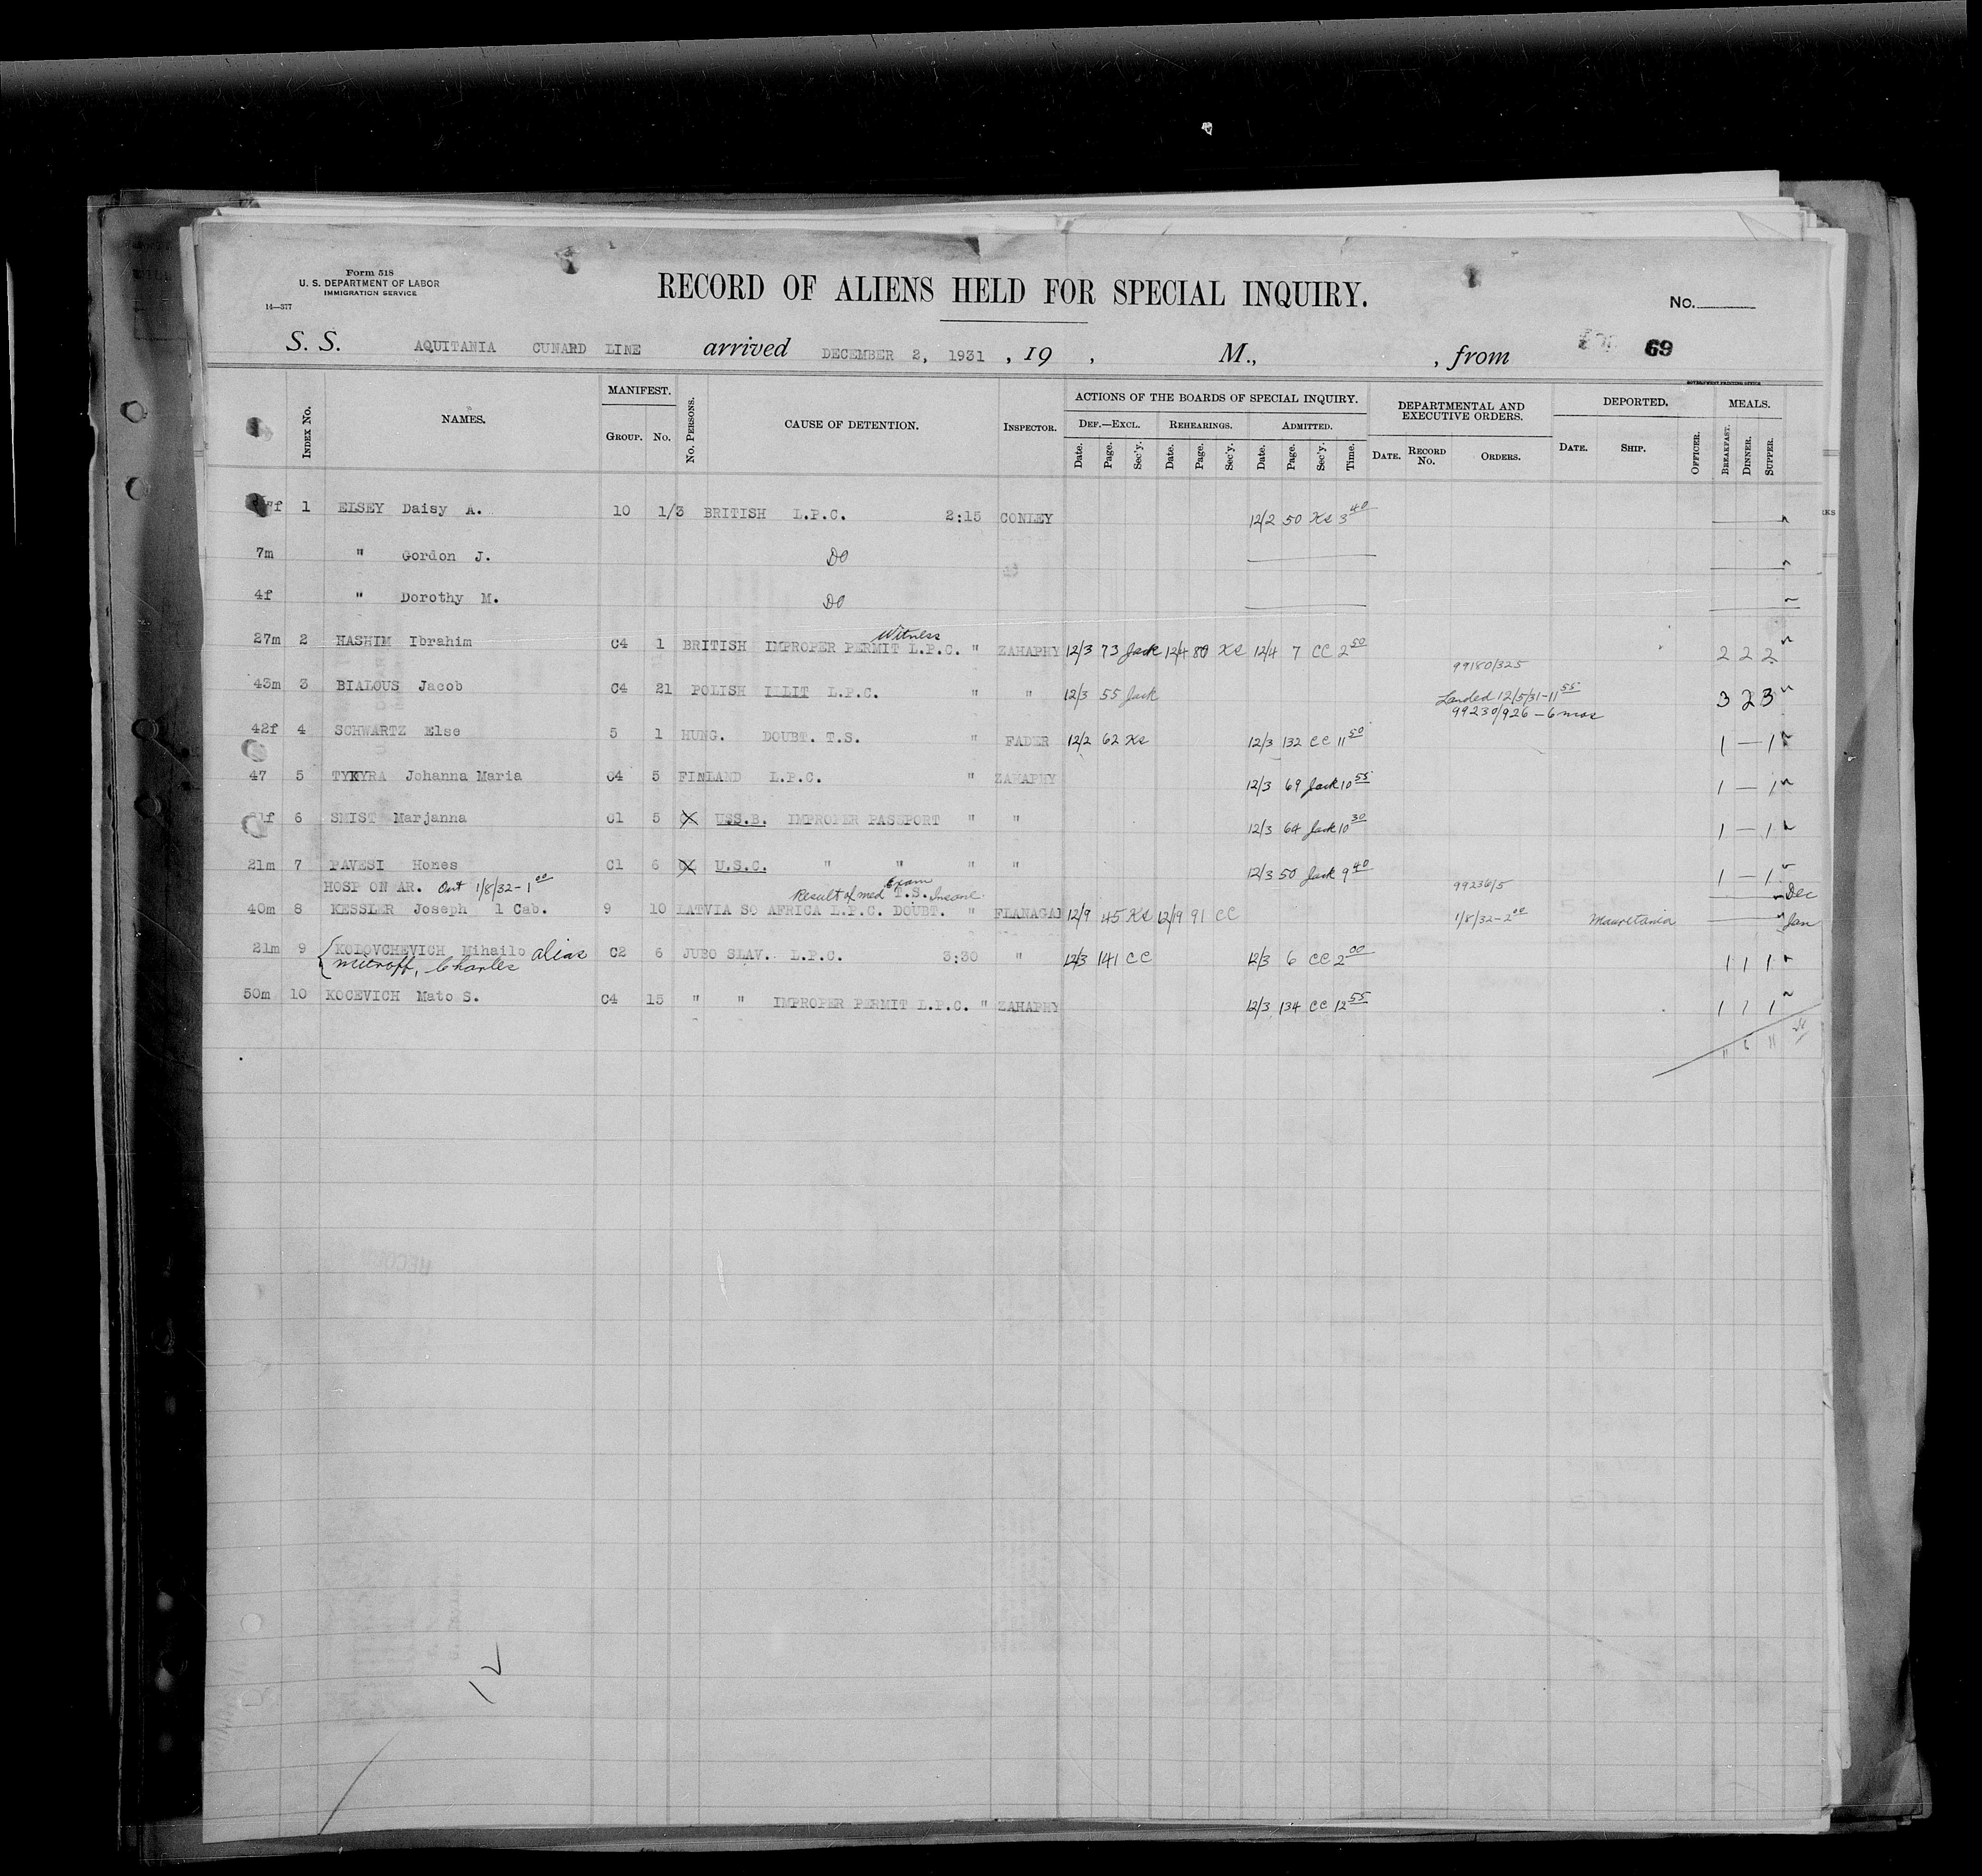 Form 518
U. S. DEPARTMENT OF LABOR
IMMIGRATION SERVICE
14—577
RECORD OF ALIENS HELD FOR SPECIAL INQUIRY.
No.
S. S. AQUITANIA CUNARD LINE arrived DECEMBER 2, 1931 , 19 , M., , from 69
GOVERNMENT PRINTING OFFICE
INDEX No. NAMES. MANIFEST. GROUP. No. No. PERSONS. CAUSE OF DETENTION. INSPECTOR. ACTIONS OF THE BOARDS OF SPECIAL INQUIRY. DEPARTMENTAL AND EXECUTIVE ORDERS. DEPORTED. MEALS.
DEF.—EXCL. REHEARINGS. ADMITTED.
Date. Page. Sec'y. Date. Page. Sec'y. Date. Page. Sec'y. Time. DATE. RECORD No. ORDERS. DATE. SHIP. OFFICER. BREAKFAST. DINNER. SUPPER.
f 1 ELSEY Daisy A. 10 1/3 BRITISH L.P.C. 2:15 CONLEY 12/2 50 Ks 3 40
7m " Gordon J. DO
4f " Dorothy M. DO
Witness
27m 2 HASHIM Ibrahim C4 1 BRITISH IMPROPER PERMIT L.P.C. " ZAHAPHY 12/3 73 Jack 12/4 80 Ks 12/4 7 CC 2 50 2 2 2
99180/325
43m 3 BIALOUS Jacob C4 21 POLISH ILLIT L.P.C. " " 12/3 55 Jack Landed 12/5/31-11 55 3 2 3
99230/926 - 6 mos
42f 4 SCHWARTZ Else 5 1 HUNG. DOUBT. T.S. " FADER 12/2 62 Ks 12/3 132 CC 11 50 1 — 1
47 5 TYKYRA Johanna Maria C4 5 FINLAND L.P.C. " ZAHAPHY 12/3 69 Jack 10 55 1 — 1
1f 6 SMIST Marjanna C1 5 USS.B. IMPROPER PASSPORT " " 12/3 64 Jack 10 30 1 — 1
21m 7 PAVESI Homes C1 6 U.S.C. " " " " 12/3 50 Jack 9 40 1 — 1
HOSP ON AR. Out 1/8/32-1 00 Result of med Exam T.S. Insane 99236/5 Dec
40m 8 KESSLER Joseph 1 Cab. 9 10 LATVIA SO AFRICA L.P.C. DOUBT. " FLANAGAN 12/9 45 Ks 12/19 91 CC 1/8/32-2 00 Mauretania Jan
21m 9 KOLOVCHEVICH Mihailo alias C2 6 JUGO SLAV. L.P.C. 3:30 " 12/3 141 CC 12/3 6 CC 2 00 1 1 1
Mitroff, Charles
50m 10 KOCEVICH Mato S. C4 15 " " IMPROPER PERMIT L.P.C. " ZAHAPHY 12/3 134 CC 12 55 1 1 1
11 6 11